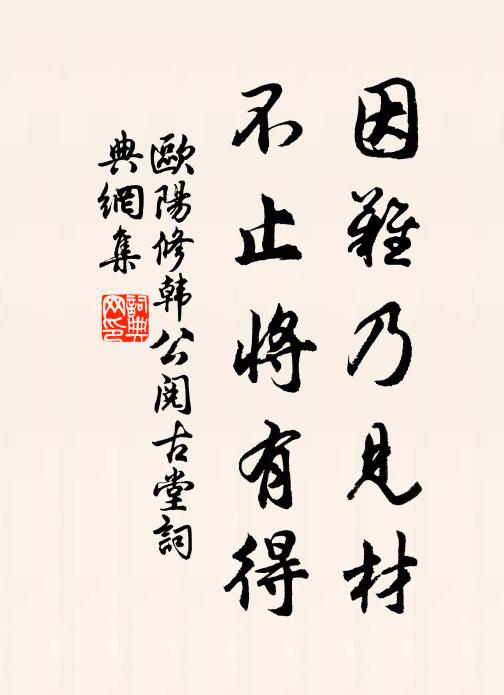 因難乃見材
不止將有得
歐陽修韩公阅古堂詞
典網集
詞典
网印